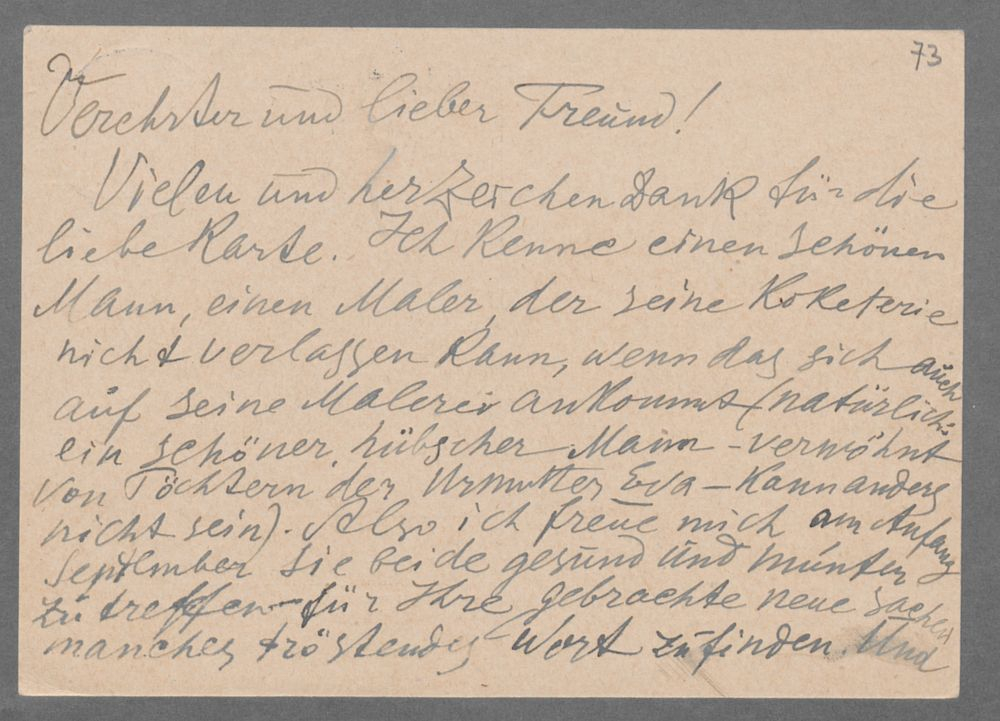 73
Verehrter und lieber Freund!
Vielen und herzlichen Dank für die
liebe Karte. Ich kenne einen schönen
Mann, einen Maler, der seine Koketerie
nicht verlassen kann, wenn das sich auch
auf seine Malerei ankommt (natürlich:
ein schöner, hübscher Mann – verwöhnt
von Töchtern der Urmutter Eva – kann anders
nicht sein). Also ich freue mich am Anfang
September Sie beide gesund und munter
zu treffen – für Ihre gebrachte neue Sachen
manches tröstendes Wort zu finden. Und